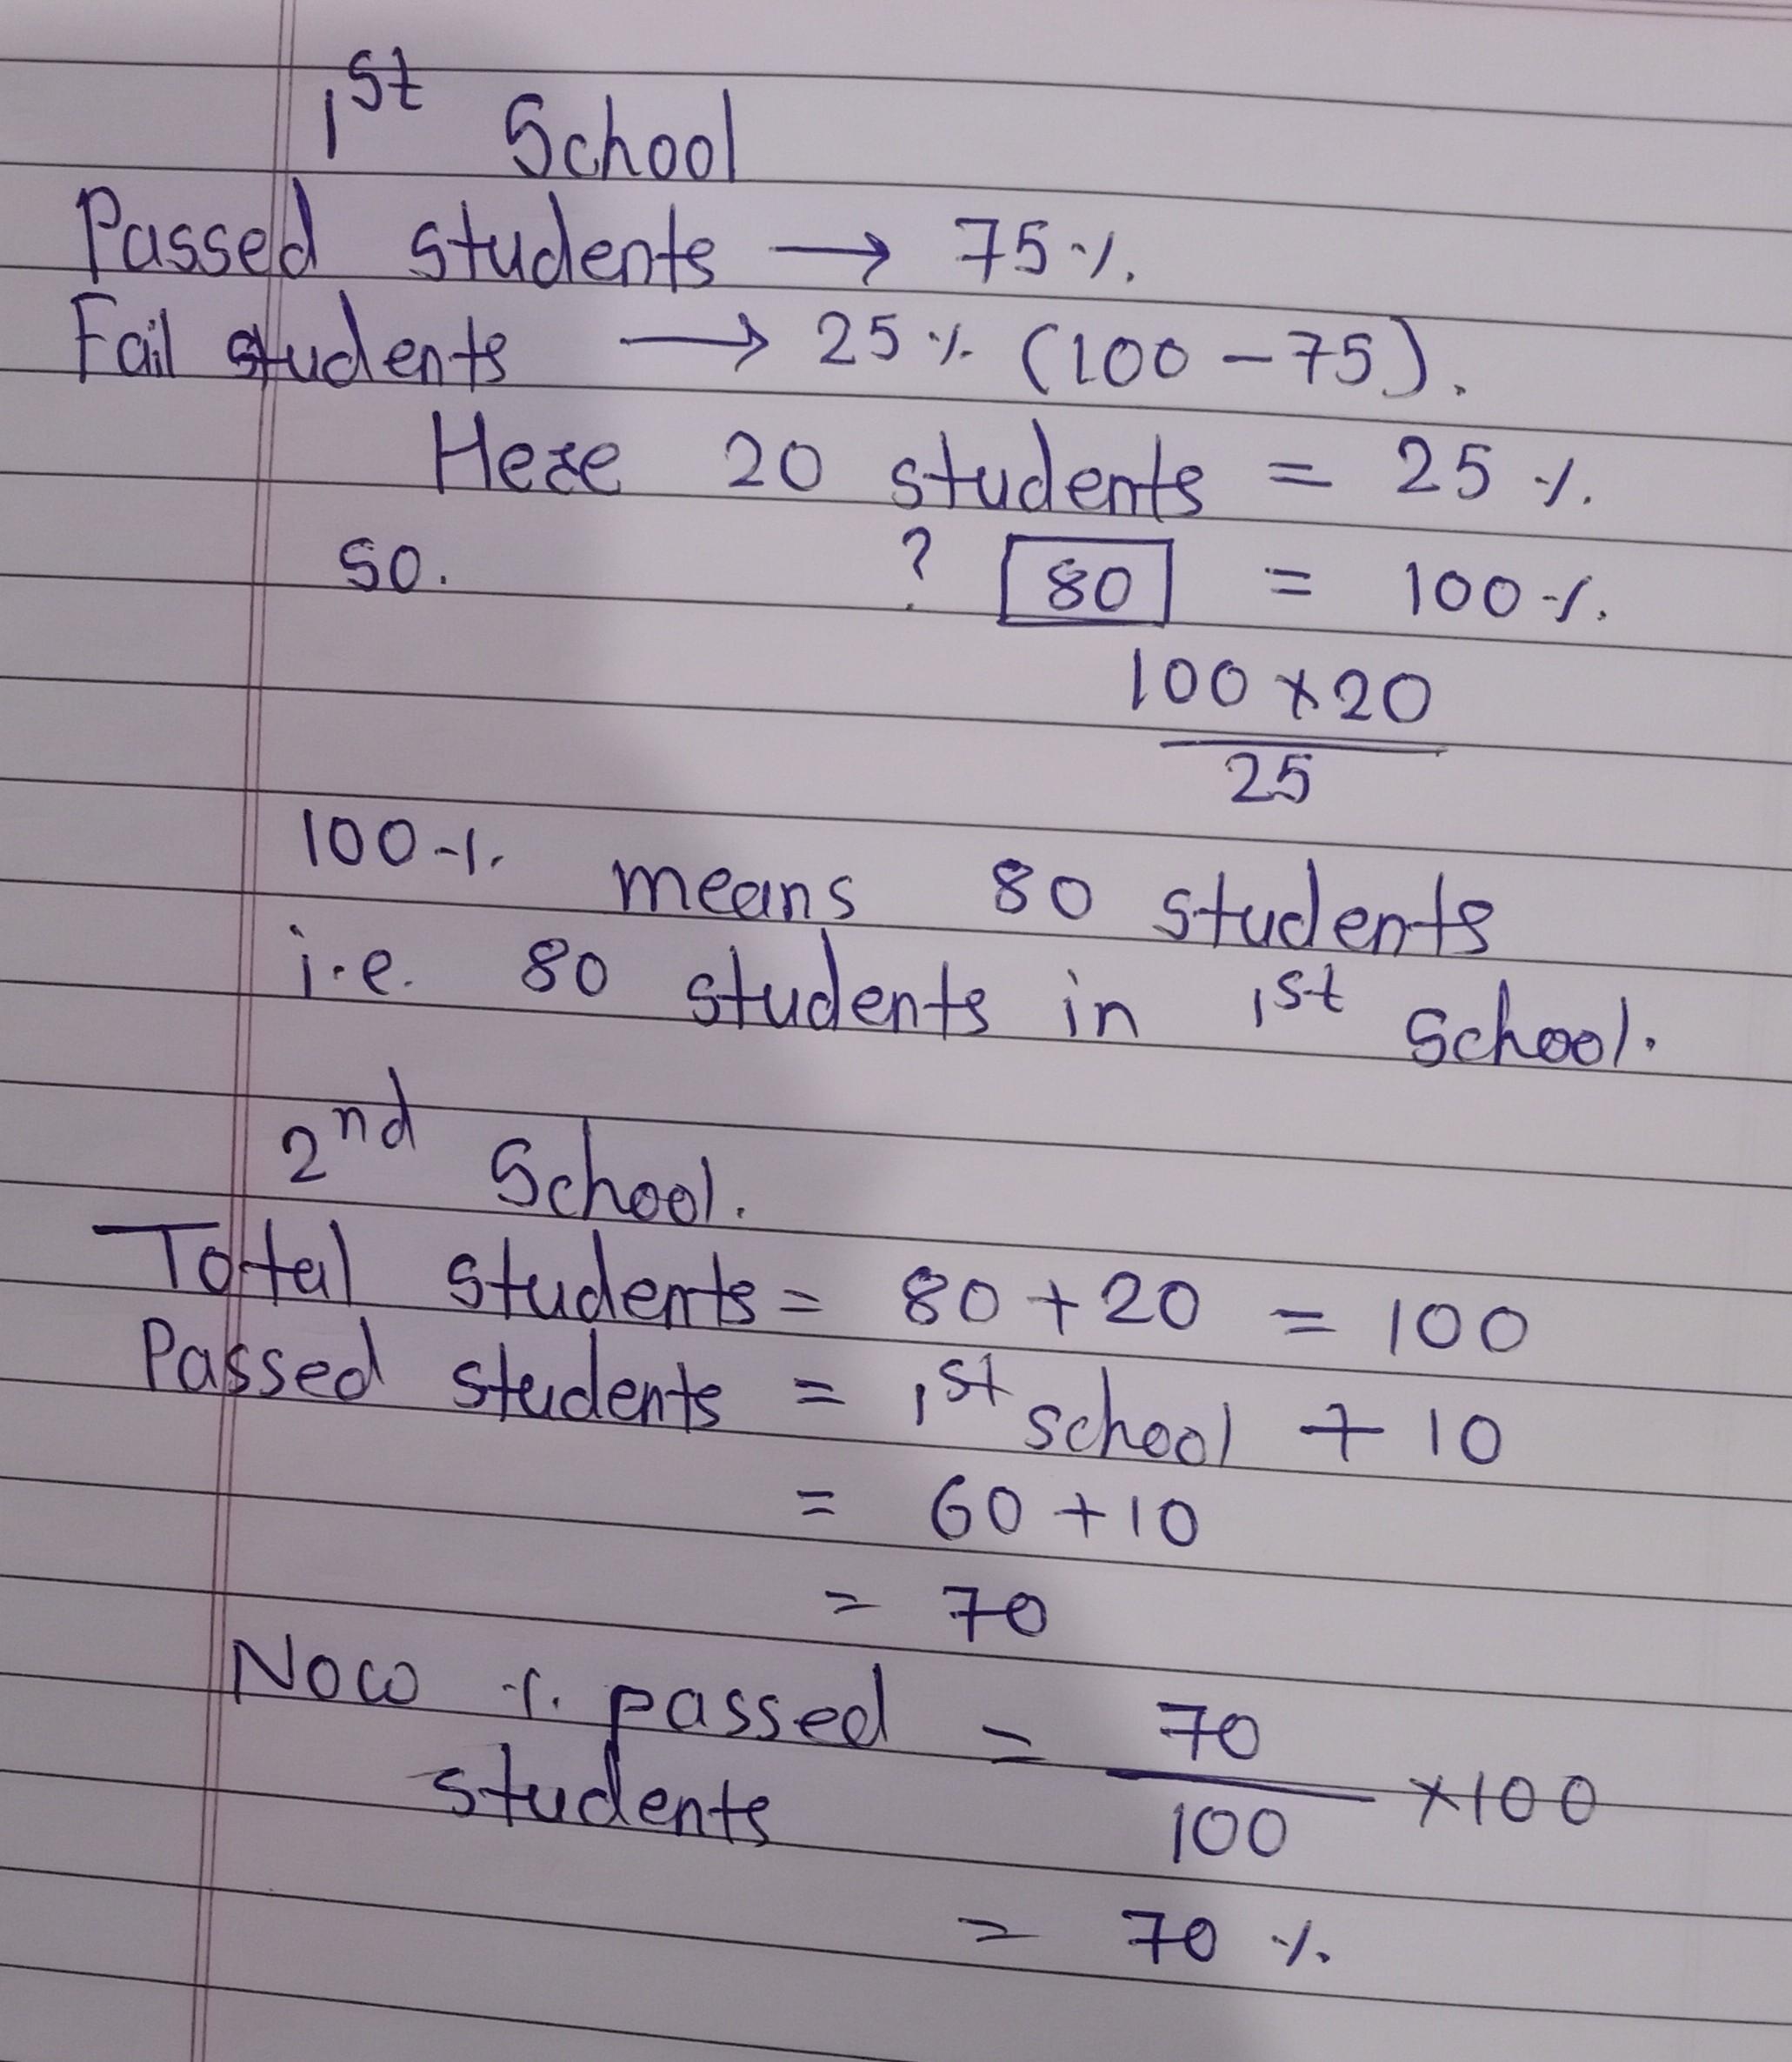 1st School
Passed students → 75%.
Fail students → 25% (100-75).
Here 20 students = 25%.
so. ? 80 = 100%.
100×20
25
100% means 80 students
i.e. 80 students in 1st School.
2nd School.
Total students = 80+20 = 100
Passed students = 1st school + 10
= 60+10
= 70
Now % passed = 70
students 100 ×100
= 70 %.